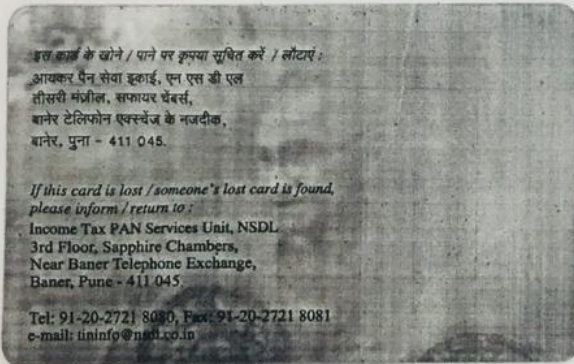 इस कार्ड के खोने / पाने पर कृपया सूचित करें / लौटाएं :
आयकर पैन सेवा इकाई, एन एस डी एल
तीसरी मंज़ील, सफायर चेंबर्स,
बानेर टेलिफोन एक्स्चेंज के नजदीक,
बानेर, पुना - 411 045.
If this card is lost / someone's lost card is found,
please inform / return to :
Income Tax PAN Services Unit, NSDL
3rd Floor, Sapphire Chambers,
Near Baner Telephone Exchange,
Baner, Pune - 411 045.
Tel: 91-20-2721 8080, Fax: 91-20-2721 8081
e-mail: tininfo@nsdl.co.in